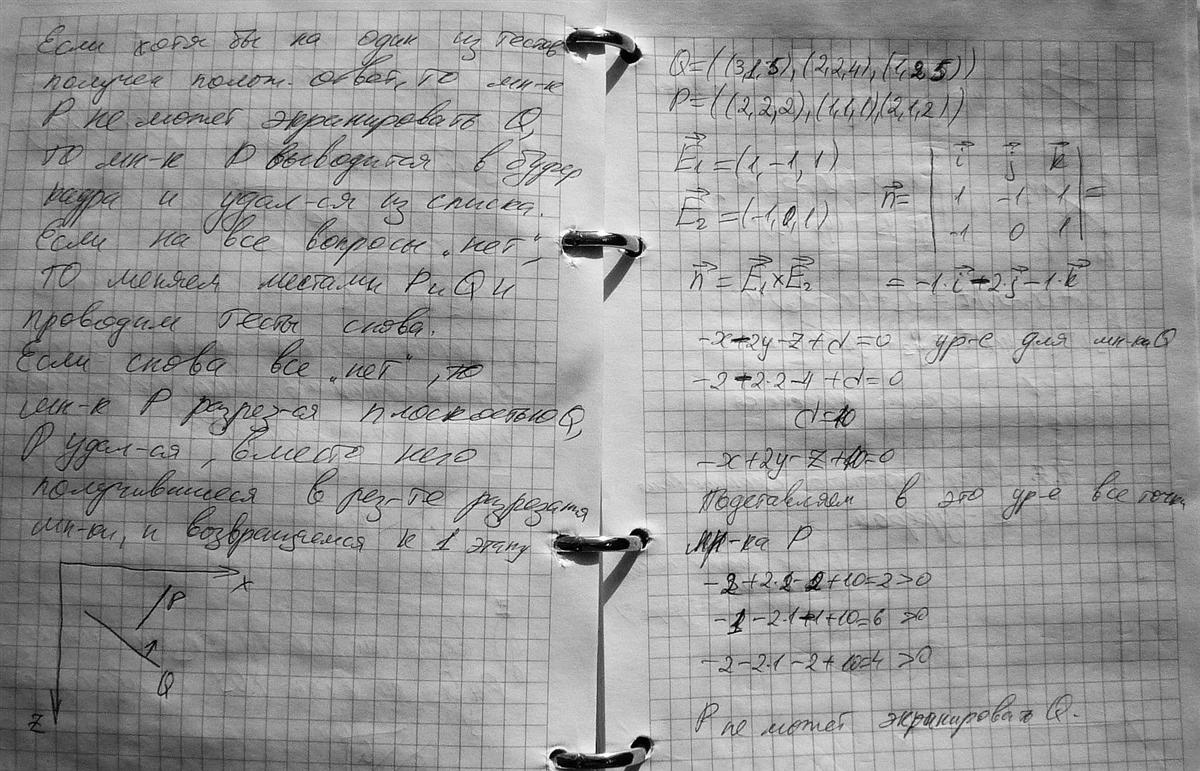 Если хотя бы на один из тестов
получен полож. ответ, то мн-к
P не может экранировать Q,
то мн-к P выводится в буфер
кадра и удал-ся из списка.
Если на все вопросы „нет“,
то меняем местами P и Q и
проводим тесты снова.
Если снова все „нет“, то
мн-к P разрез-ся плоскостью Q,
P удал-ся, вместо него
получившиеся в рез-те разрезания
мн-ки, и возвращаемся к 1 этапу
X
P
Q
Z
Q=((3,1,5),(2,2,4),(1,2,5))
P=((2,2,2),(1,1,1)(2,1,2))
E₁=(1,-1,1)
E₂=(-1,0,1)
n= | i j k |
| 1 -1 1 | =
| -1 0 1 |
n=E₁×E₂ = -1·i-2·j-1·k
-x-2y-z+d=0 ур-е для мн-ка Q
-2-2·2-4+d=0
d=10
-x+2y-z+10=0
Подставляем в это ур-е все точки
мн-ка P
-2+2·2-2+10=2>0
-1-2·1-1+10=6 >0
-2-2·1-2+10=4 >0
P не может экранировать Q.